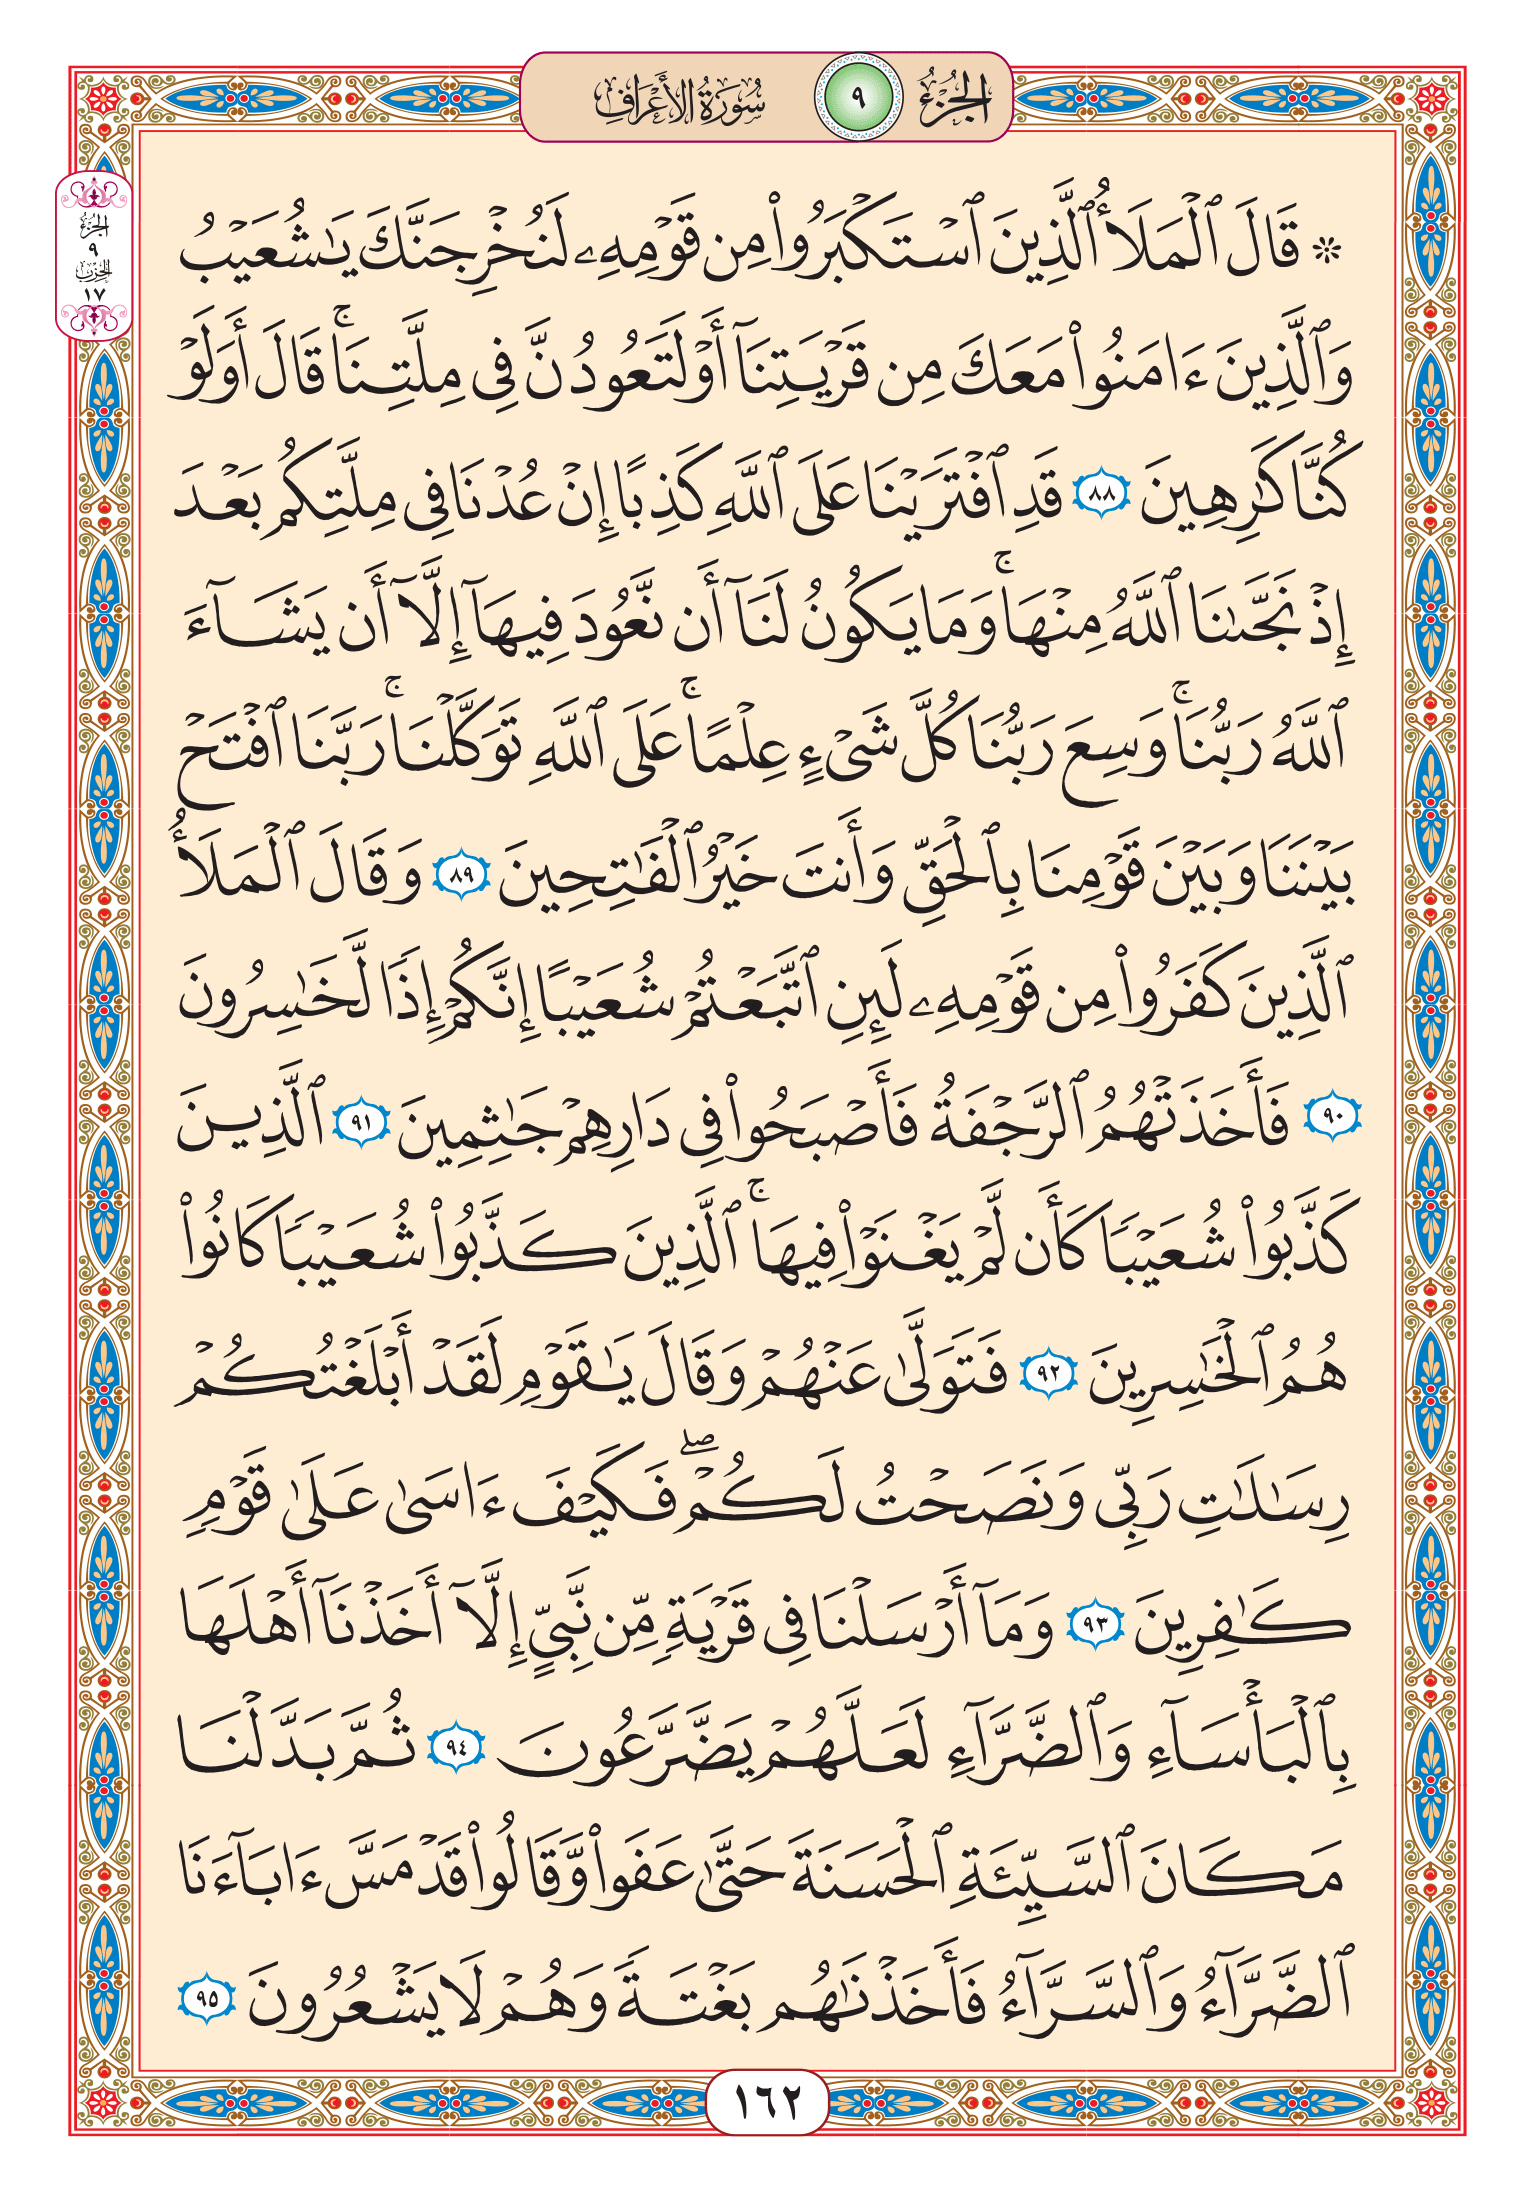 الجزء ٩ سورة الأعراف
الجزء
٩
الحزب
١٧
۞ قَالَ ٱلْمَلَأُ ٱلَّذِينَ ٱسْتَكْبَرُوا۟ مِن قَوْمِهِۦ لَنُخْرِجَنَّكَ يَٰشُعَيْبُ
وَٱلَّذِينَ ءَامَنُوا۟ مَعَكَ مِن قَرْيَتِنَآ أَوْ لَتَعُودُنَّ فِى مِلَّتِنَا ۚ قَالَ أَوَلَوْ
كُنَّا كَٰرِهِينَ ٨٨ قَدِ ٱفْتَرَيْنَا عَلَى ٱللَّهِ كَذِبًا إِنْ عُدْنَا فِى مِلَّتِكُم بَعْدَ
إِذْ نَجَّىٰنَا ٱللَّهُ مِنْهَا ۚ وَمَا يَكُونُ لَنَآ أَن نَّعُودَ فِيهَآ إِلَّآ أَن يَشَآءَ
ٱللَّهُ رَبُّنَا ۚ وَسِعَ رَبُّنَا كُلَّ شَىْءٍ عِلْمًا ۚ عَلَى ٱللَّهِ تَوَكَّلْنَا ۚ رَبَّنَا ٱفْتَحْ
بَيْنَنَا وَبَيْنَ قَوْمِنَا بِٱلْحَقِّ وَأَنتَ خَيْرُ ٱلْفَٰتِحِينَ ٨٩ وَقَالَ ٱلْمَلَأُ
ٱلَّذِينَ كَفَرُوا۟ مِن قَوْمِهِۦ لَئِنِ ٱتَّبَعْتُمْ شُعَيْبًا إِنَّكُمْ إِذًا لَّخَٰسِرُونَ
٩٠ فَأَخَذَتْهُمُ ٱلرَّجْفَةُ فَأَصْبَحُوا۟ فِى دَارِهِمْ جَٰثِمِينَ ٩١ ٱلَّذِينَ
كَذَّبُوا۟ شُعَيْبًا كَأَن لَّمْ يَغْنَوْا۟ فِيهَا ۚ ٱلَّذِينَ كَذَّبُوا۟ شُعَيْبًا كَانُوا۟
هُمُ ٱلْخَٰسِرِينَ ٩٢ فَتَوَلَّىٰ عَنْهُمْ وَقَالَ يَٰقَوْمِ لَقَدْ أَبْلَغْتُكُمْ
رِسَٰلَٰتِ رَبِّى وَنَصَحْتُ لَكُمْ ۖ فَكَيْفَ ءَاسَىٰ عَلَىٰ قَوْمٍ
كَٰفِرِينَ ٩٣ وَمَآ أَرْسَلْنَا فِى قَرْيَةٍ مِّن نَّبِىٍّ إِلَّآ أَخَذْنَآ أَهْلَهَا
بِٱلْبَأْسَآءِ وَٱلضَّرَّآءِ لَعَلَّهُمْ يَضَّرَّعُونَ ٩٤ ثُمَّ بَدَّلْنَا
مَكَانَ ٱلسَّيِّئَةِ ٱلْحَسَنَةَ حَتَّىٰ عَفَوا۟ وَّقَالُوا۟ قَدْ مَسَّ ءَابَآءَنَا
ٱلضَّرَّآءُ وَٱلسَّرَّآءُ فَأَخَذْنَٰهُم بَغْتَةً وَهُمْ لَا يَشْعُرُونَ ٩٥
١٦٢